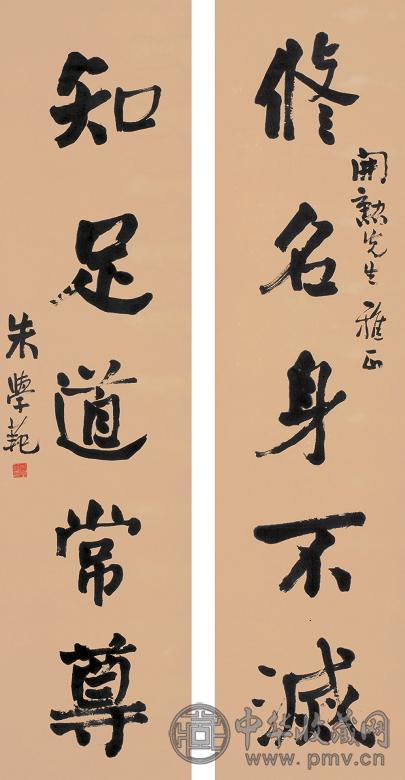 開勳先生雅正
修名身不滅
知足道常尊
朱學範
中华收藏网
www.pmv.cn